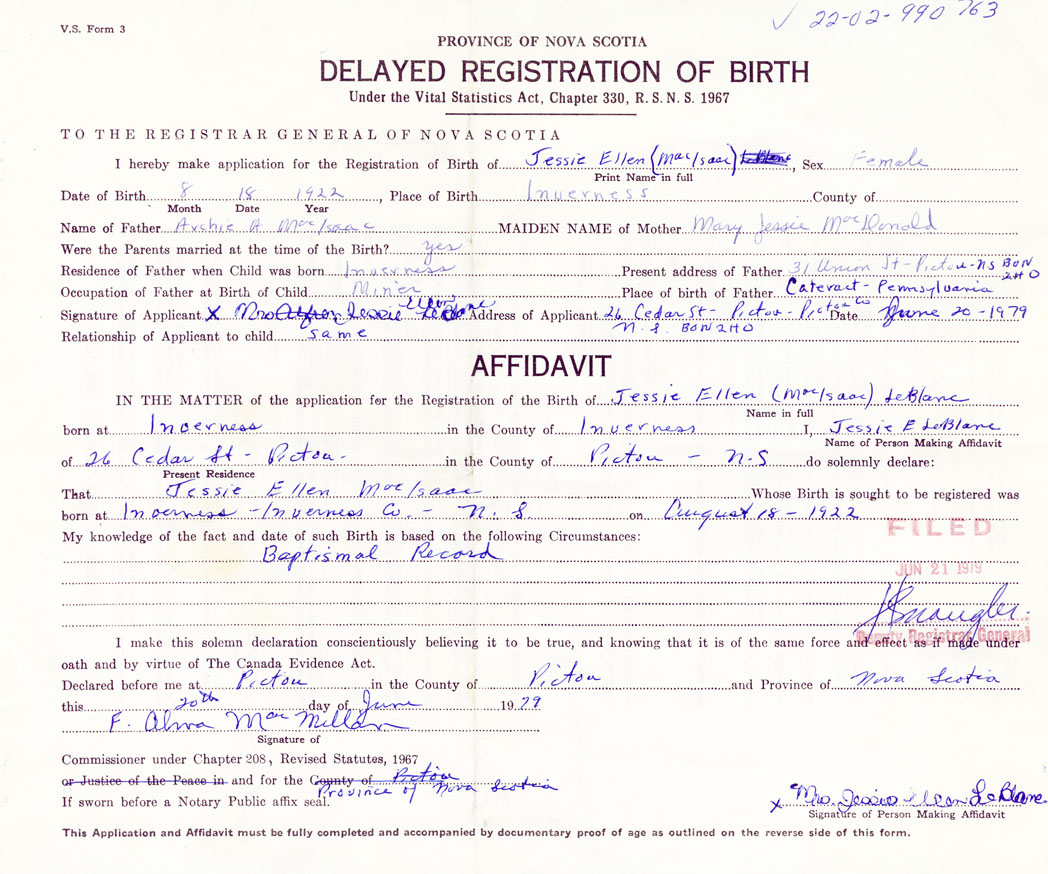 ✓ 22-02-990763
V.S. Form 3
PROVINCE OF NOVA SCOTIA
DELAYED REGISTRATION OF BIRTH
Under the Vital Statistics Act, Chapter 330, R. S. N. S. 1967
TO THE REGISTRAR GENERAL OF NOVA SCOTIA
I hereby make application for the Registration of Birth of Jessie Ellen (MacIsaac) LeBlanc, Sex Female
Print Name in full
Date of Birth 8 18 1922, Place of Birth Inverness County of
Month Date Year
Name of Father Archie A MacIsaac MAIDEN NAME of Mother Mary Jessie MacDonald
Were the Parents married at the time of the Birth? yes
Residence of Father when Child was born Inverness Present address of Father 31 Union St - Pictou - NS B0N 2H0
Occupation of Father at Birth of Child Miner Place of birth of Father Cateract - Pennsylvania
Signature of Applicant X Mrs Jessie Ellen Address of Applicant 26 Cedar St - Pictou - Pictou Co N.S. B0N 2H0 Date June 20 - 1979
Relationship of Applicant to child same
AFFIDAVIT
IN THE MATTER of the application for the Registration of the Birth of Jessie Ellen (MacIsaac) LeBlanc
Name in full
born at Inverness in the County of Inverness I, Jessie E LeBlanc
Name of Person Making Affidavit
of 26 Cedar St - Pictou - in the County of Pictou - N-S do solemnly declare:
Present Residence
That Jessie Ellen MacIsaac Whose Birth is sought to be registered was
born at Inverness - Inverness Co. - N. S. on August 18 - 1922
FILED
My knowledge of the fact and date of such Birth is based on the following Circumstances:
Baptismal Record
JUN 21 1979
Deputy Registrar General
I make this solemn declaration conscientiously believing it to be true, and knowing that it is of the same force and effect as if made under
oath and by virtue of The Canada Evidence Act.
Declared before me at Pictou in the County of Pictou and Province of Nova Scotia
this 20th day of June 1979
F. Alma MacMillan
Signature of
Commissioner under Chapter 208, Revised Statutes, 1967
or Justice of the Peace in and for the County of Pictou
Province of Nova Scotia
If sworn before a Notary Public affix seal.
x Mrs. Jessie Ellen LeBlanc
Signature of Person Making Affidavit
This Application and Affidavit must be fully completed and accompanied by documentary proof of age as outlined on the reverse side of this form.